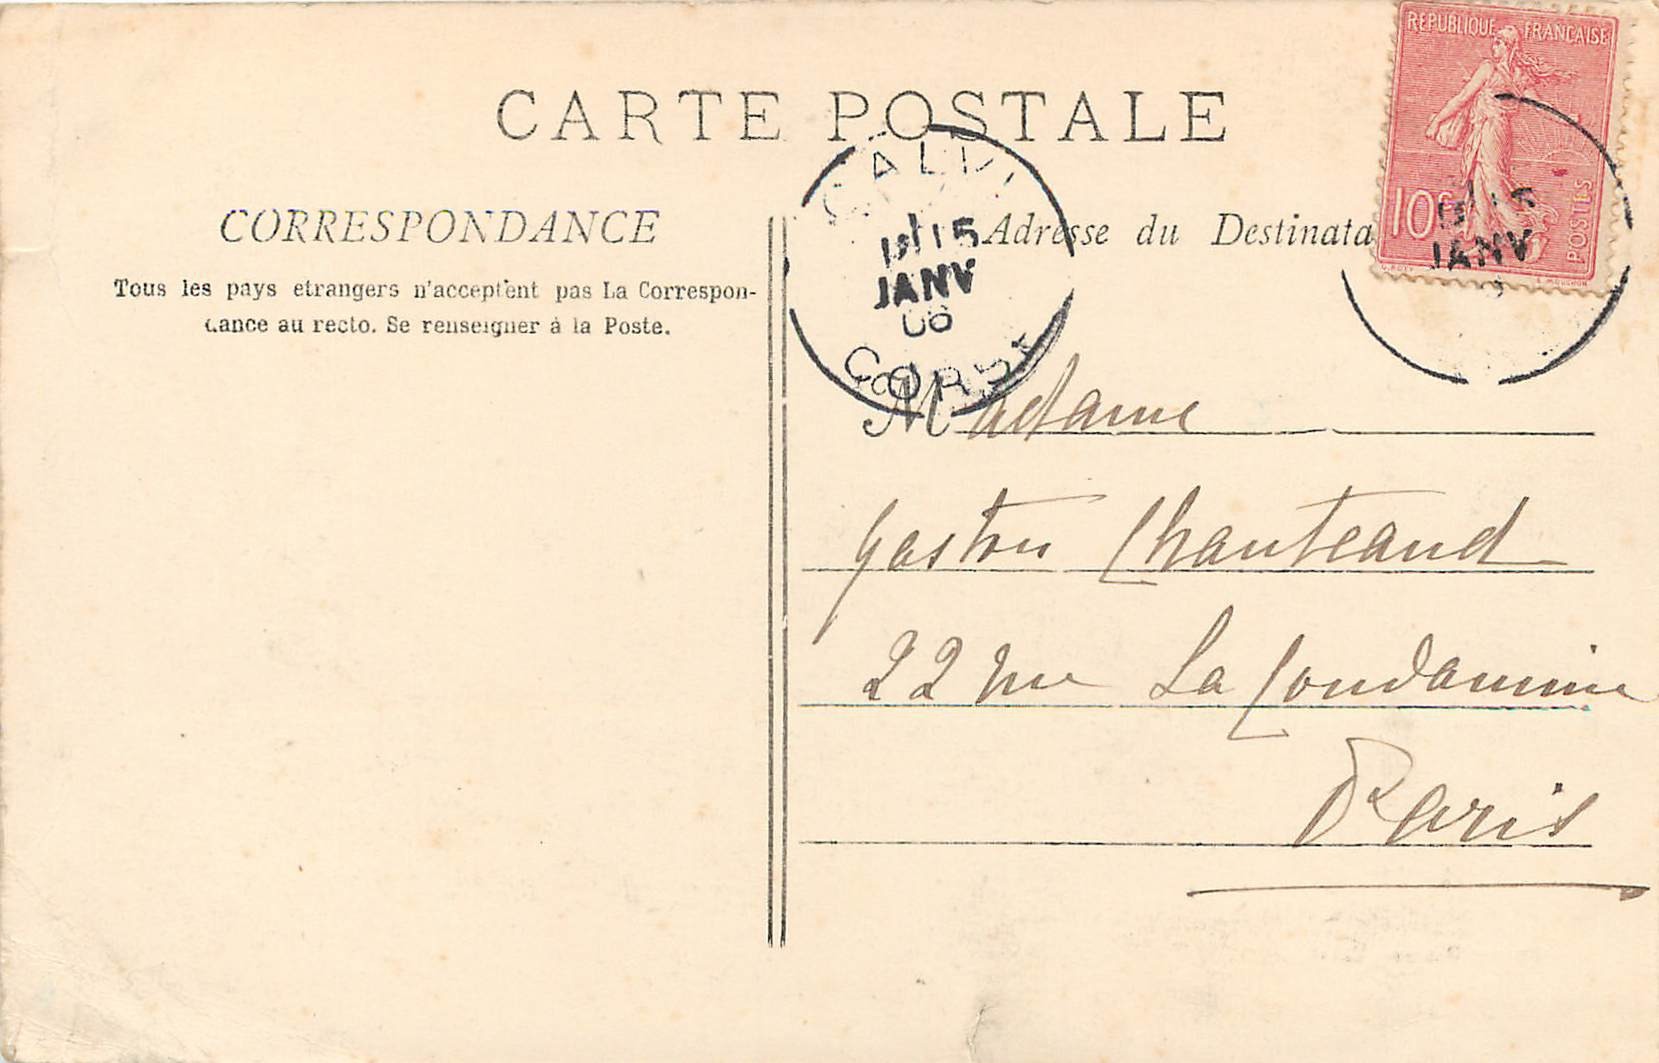 CARTE POSTALE
REPUBLIQUE FRANÇAISE
10c
POSTES
O. ROTY
E. MOUCHON
CALVI
15
JANV
06
CORSE
15
JANV
CORRESPONDANCE
Tous les pays etrangers n'acceptent pas La Correspon-
dance au recto. Se renseigner à la Poste.
Adresse du Destinata
Madame
Gaston Chanteaud
22 rue La Condamine
Paris